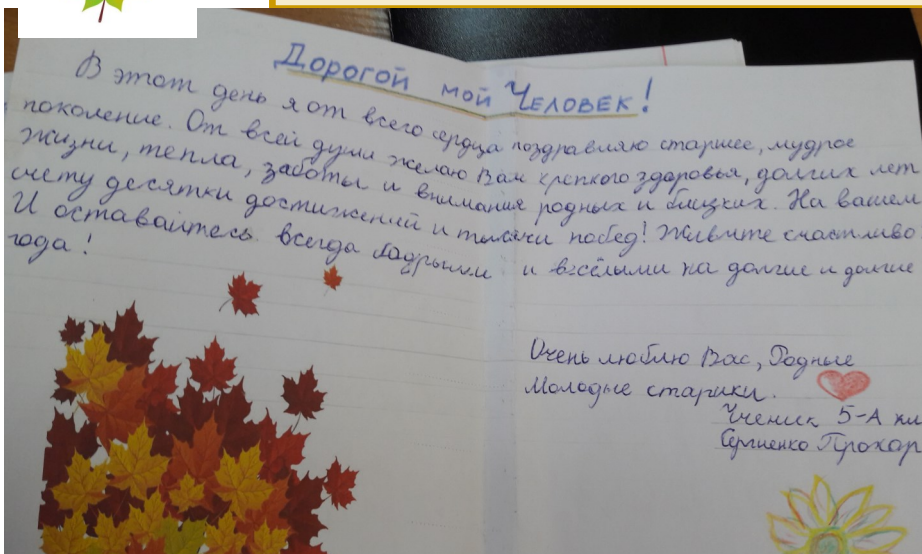 Дорогой мой Человек!
В этот день я от всего сердца поздравляю старшее, мудрое
поколение. От всей души желаю Вам крепкого здоровья, долгих лет
жизни, тепла, заботы и внимания родных и близких. На вашем
счету десятки достижений и тысячи побед! Живите счастливо
И оставайтесь всегда бодрыми и весёлыми на долгие и долгие
года!
Очень люблю Вас, Родные
Молодые старики.
Ученик 5-А кл
Сергиенко Прохор